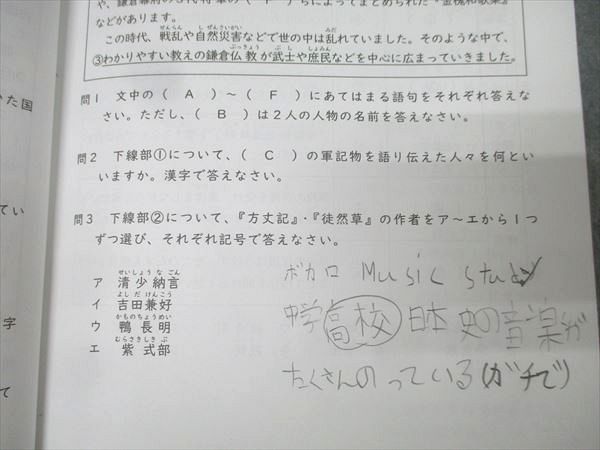 や、鎌倉幕府の3代将軍の（ F ）らによってまとめられた『金槐和歌集』
などがあります。
この時代、戦乱や自然災害などで世の中は乱れていました。そのような中で、
③わかりやすい教えの鎌倉仏教が武士や庶民などを中心に広まっていきました。
問1 文中の（ A ）～（ F ）にあてはまる語句をそれぞれ答えな
さい。ただし、（ B ）は2人の人物の名前を答えなさい。
問2 下線部①について、（ C ）の軍記物を語り伝えた人々を何とい
いますか。漢字で答えなさい。
問3 下線部②について、『方丈記』・『徒然草』の作者をア～エから1つ
ずつ選び、それぞれ記号で答えなさい。
ア 清少納言
イ 吉田兼好
ウ 鴨長明
エ 紫式部
ボカロ Music study
中学高校 日本史の音楽が
たくさんのっている(ガチで)
た国
てい
字
て